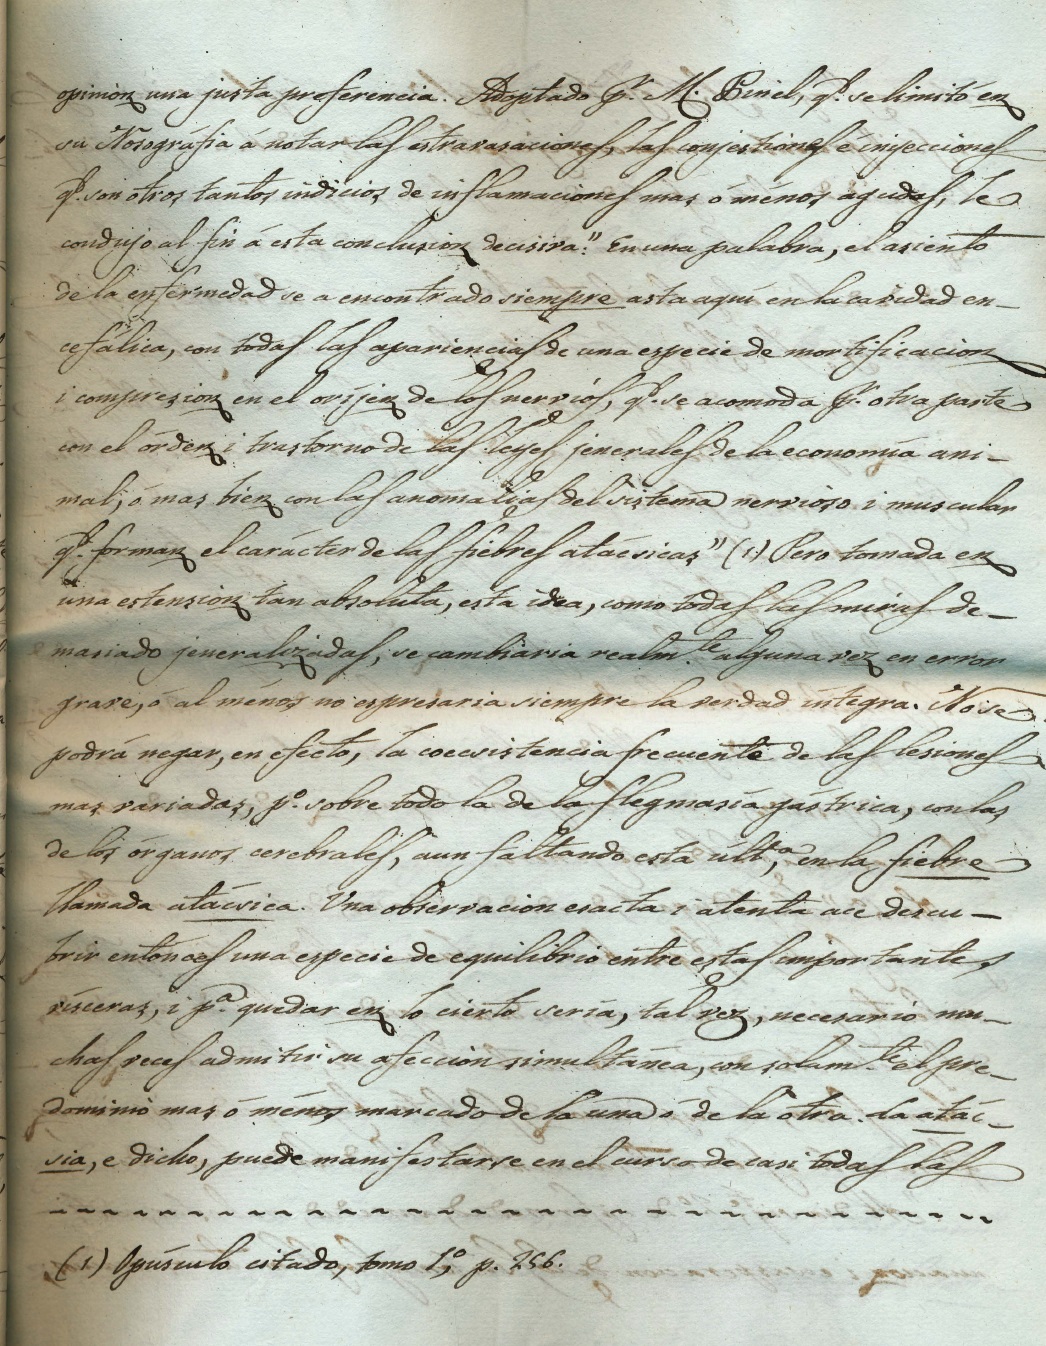 opinion una justa preferencia. Adoptado pr. M. Pinel, qe. se limitó en
su Nosográfia á notar las estravasaciones, las conjestiones é injecciones
qe. son otros tantos indicios de inflamaciones mas ó ménos agudas, le
condujo al fin á esta conclusion decisiva:" En una palabra, el asiento
de la enfermedad se a encontrado siempre asta aquí en la cavidad en-
cefálica, con todas las apariencias de una especie de mortificacion
i compresion en el oríjen de los nervios, qe. se acomoda pr. otra parte
con el órden i trastorno de las leyes jenerales de la economía ani-
mal, ó mas bien con las anomalías del sistema nervioso i muscular
qe. forman el carácter de las fiebres atácsicas" (1) Pero tomada en
una estension tan absoluta, esta idea, como todas las miras de-
masiado jeneralizadas, se cambiaria realmte. alguna vez en error
grave, ó al ménos no espresaria siempre la verdad íntegra. No se
podrá negar, en efecto, la coecsistencia frecuente de las lesiones
mas variadas, po. sobre todo la de la flegmasía gástrica, con las
de los órganos cerebrales, aun faltando esta últa, en la fiebre
llamada atácsica. Una observacion esacta i atenta ace descu-
brir entónces una especie de equilibrio entre estas importantes
vísceras, i pa. quedar en lo cierto seria, tal vez, necesario mu-
chas veces admitir su afeccion simultánea, con solamte. el pre-
dominio mas ó ménos marcado de la una ó de la otra. La atác-
sia, e dicho, puede manifestarse en el curso de casi todas las
(1) Opúsculo citado, tomo 1o, p. 256.